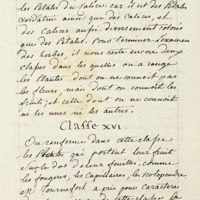 les Pétales du Calice. car il est des Pétales
verdâtres ainsi que des Calices, et
des Calices aussi diversement colorés
que des Pétales. Pour terminer l'examen
des herbes il nous reste encore deux
classes dans les quelles on a rangé
les Plantes dont on ne connoit pas
les fleurs, mais dont on connoit les
fruits, et celle dont on ne connoit
ni les unes ni les autres.
Classe XVI.
On renferme dans cette classe
les Plantes qui portent leur fruit
sur le dos de leurs feuilles, comme
les fougeres, les Capillaires, les scolopendres
Tournefort a pris pour caractere
de cette classe la